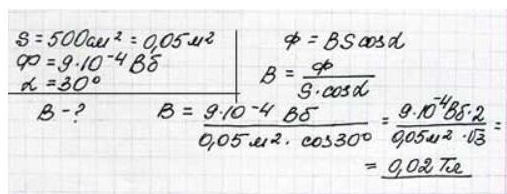 S = 500 см² = 0,05 м²
Ф = 9·10⁻⁴ Вб
α = 30°
В - ?
Ф = BS cosα
B = Ф / S·cosα
B = 9·10⁻⁴ Вб / 0,05 м² · cos30° = 9·10⁻⁴ Вб·2 / 0,05 м² · √3 =
= 0,02 Тл